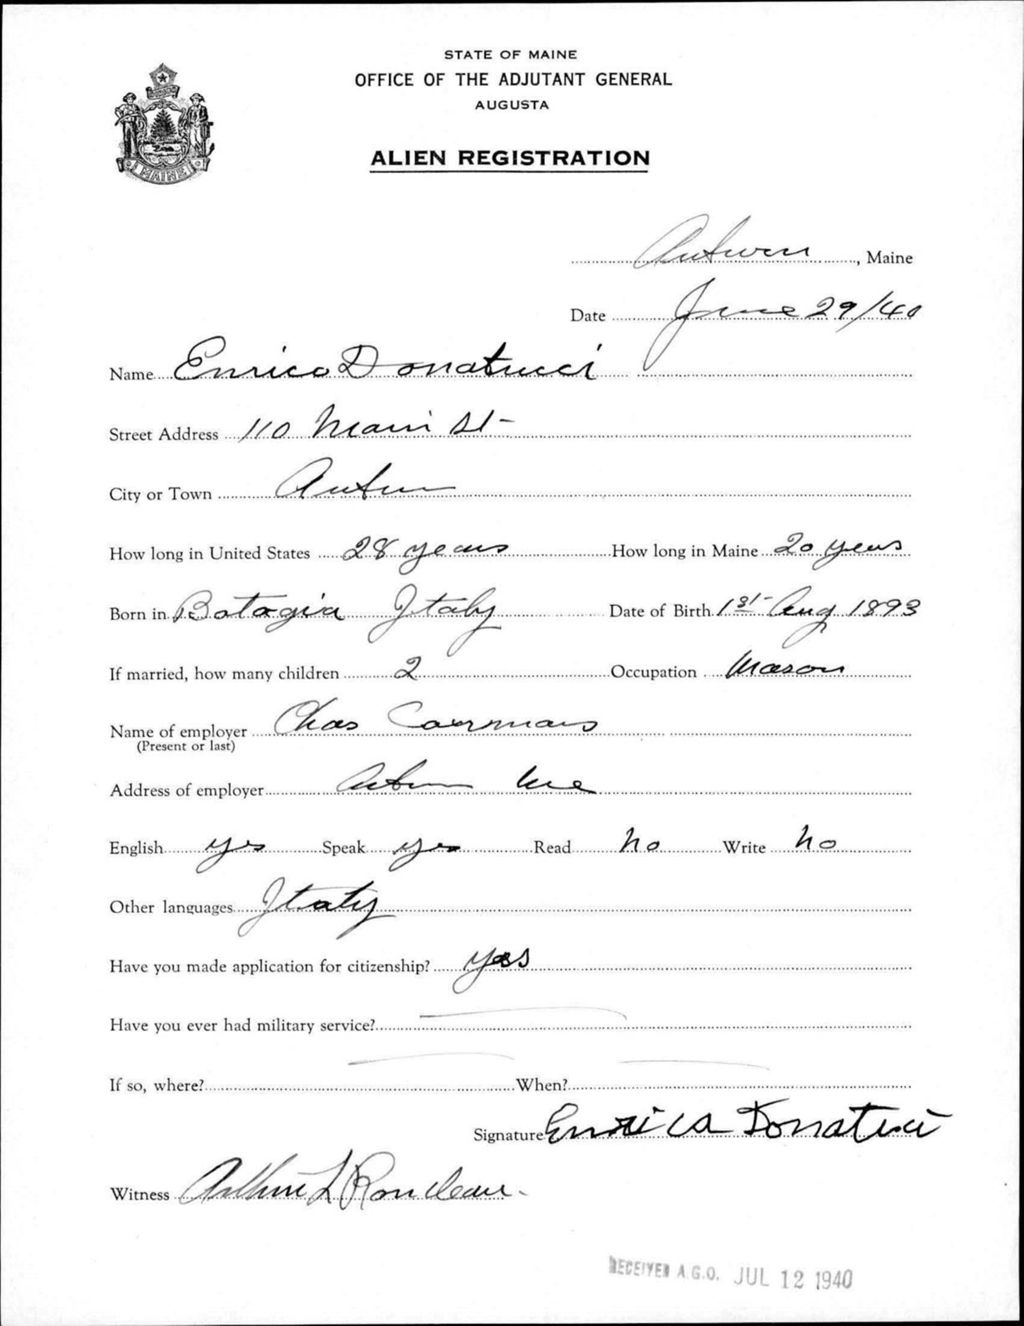 STATE OF MAINE
OFFICE OF THE ADJUTANT GENERAL
AUGUSTA
MAINE
ALIEN REGISTRATION
Auburn, Maine
Date June 29/40
Name Enrico Donatucci
Street Address 110 Main St-
City or Town Auburn
How long in United States 28 years How long in Maine 20 years
Born in Batagia Italy Date of Birth 1st Aug 1893
If married, how many children 2 Occupation Mason
Name of employer Chas
(Present or last)
Address of employer Auburn Me
English yes Speak yes Read No Write No
Other languages Italy
Have you made application for citizenship? yes
Have you ever had military service?
If so, where? When?
Signature Enrico Donatucci
Witness Arthur L Rondeau
RECEIVED A.G.O. JUL 12 1940